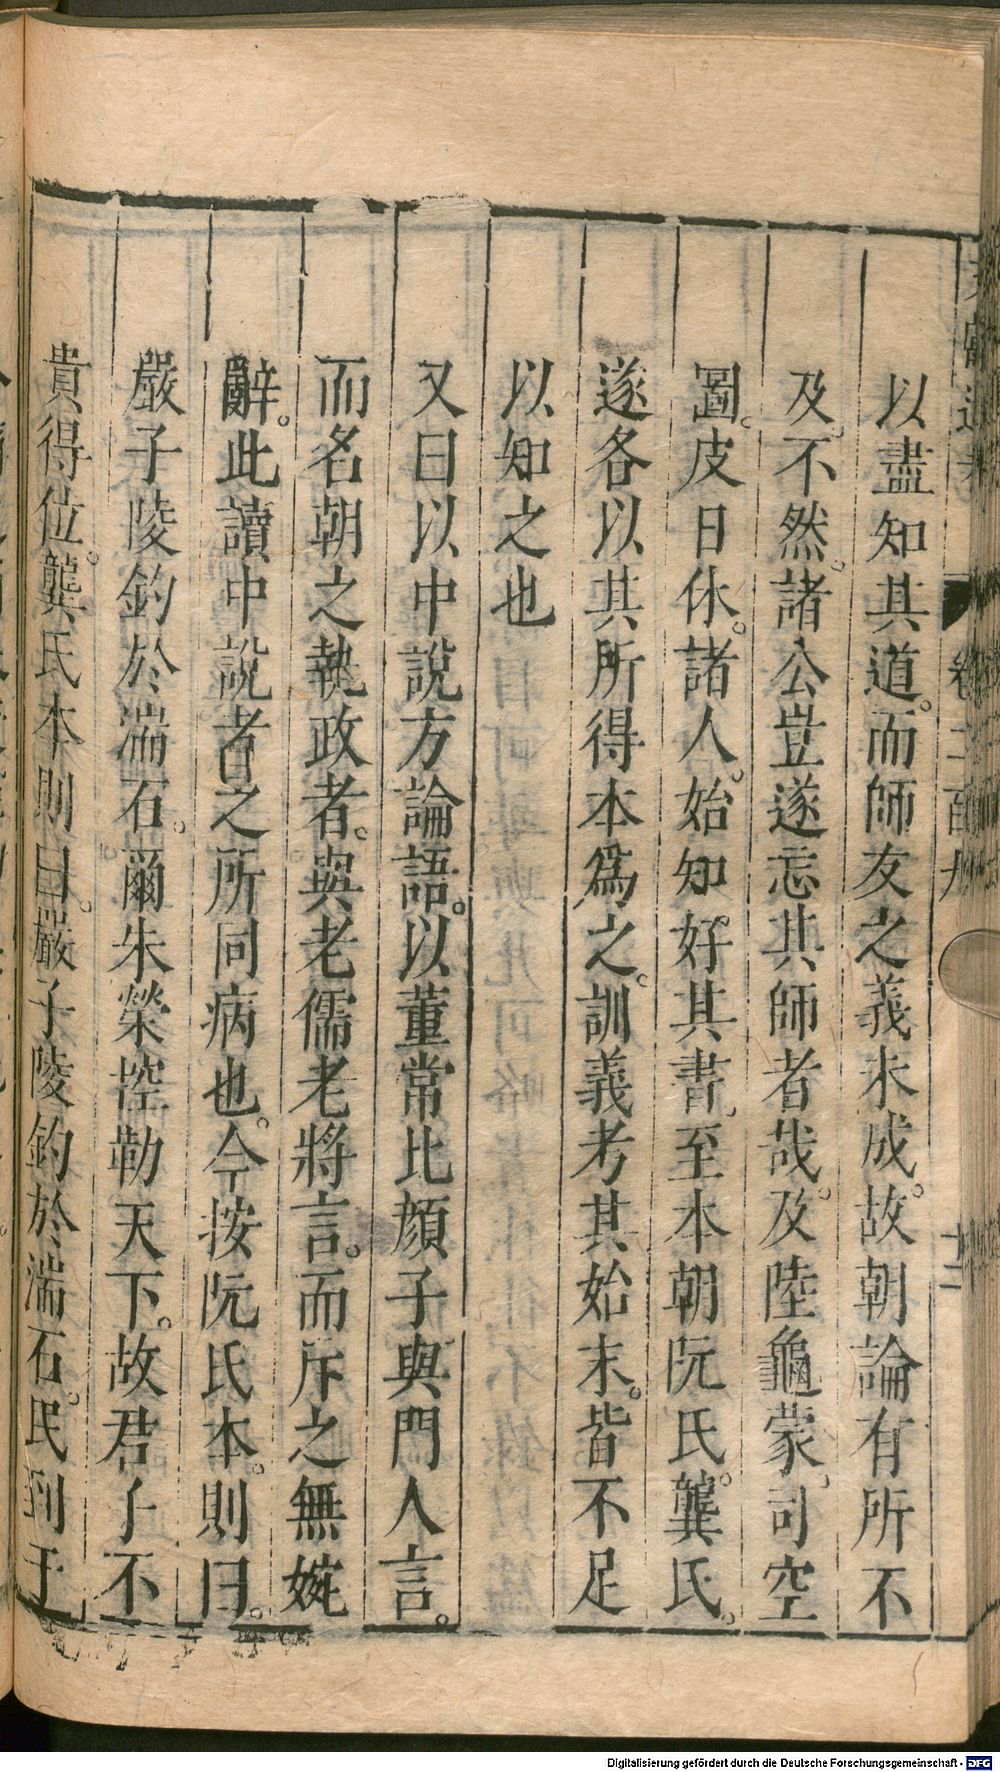 以盡知其道。而師友之義未成。故朝論有所不
及。不然。諸公豈遂忘其師者哉。及陸龜蒙。司空
圖。皮日休。諸人。始知好其書。至本朝阮氏。龔氏。
遂各以其所得本爲之。訓義考其始末。皆不足
以知之也
又曰以中說方論語。以董常比顔子與門人言。
而名朝之執政者。與老儒老將言。而斥之無婉
辭。此讀中說者之所同病也。今按阮氏本。則曰。
嚴子陵釣於湍石。爾朱榮控勒天下。故君子不
貴得位。龔氏本則曰。嚴子陵釣於湍石。民到于
卷二百九
十二
Digitalisierung gefördert durch die Deutsche Forschungsgemeinschaft - DFG